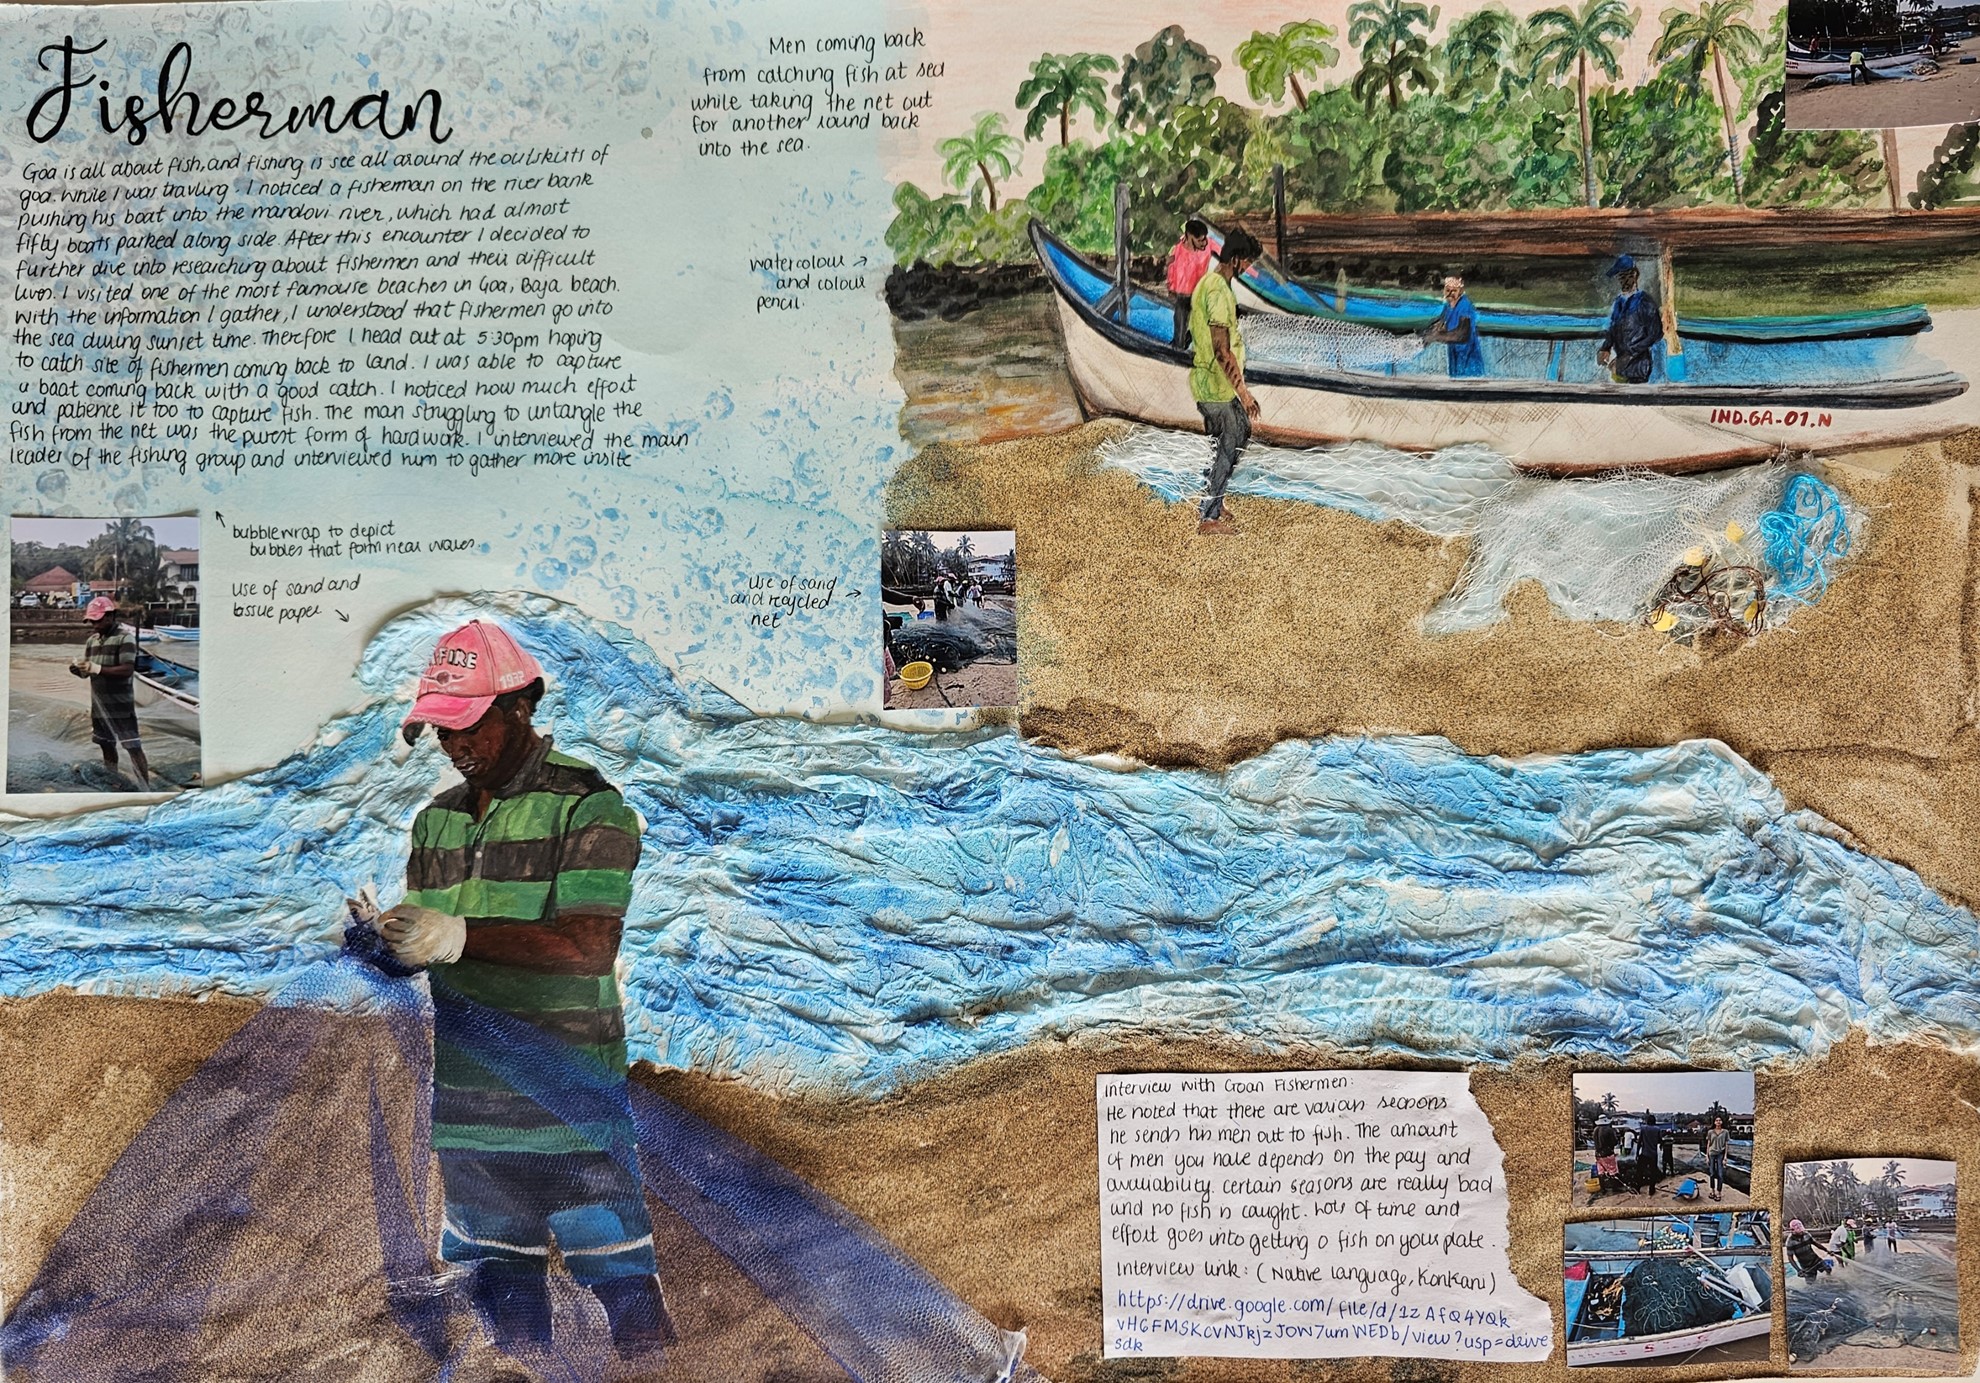 Fisherman
Goa is all about fish, and fishing is see all around the outskirts of
goa. While I was travling. I noticed a fisherman on the river bank
pushing his boat into the mandovi river, which had almost
fifty boats parked along side. After this encounter I decided to
further dive into researching about fishermen and their difficult
lives. I visited one of the most famouse beaches in Goa, Baja beach.
With the information I gather, I understood that fishermen go into
the sea during sunset time. Therefore I head out at 5:30pm hoping
to catch site of fishermen coming back to land. I was able to capture
a boat coming back with a good catch. I noticed how much effort
and patience it too to capture fish. The man struggling to untangle the
fish from the net was the purest form of hardwork. I interviewed the main
leader of the fishing group and interviewed him to gather more insite
Men coming back
from catching fish at sea
while taking the net out
for another round back
into the sea.
watercolour →
and colour
pencil.
IND.GA-01.N
bubblewrap to depict
bubbles that form near waves.
use of sand and
tissue paper
Use of sand
and recycled →
net
FIRE
1932
Interview with Goan Fishermen:
He noted that there are various seasons
he sends his men out to fish. The amount
of men you have depends on the pay and
availability. Certain seasons are really bad
and no fish is caught. Lots of time and
effort goes into getting a fish on your plate.
Interview link: (Native language, Konkani)
https://drive.google.com/file/d/1zAfQ4YQk
vHGFMSKcVNJkjzJOW7umWEDb/view?usp=drive
sdk